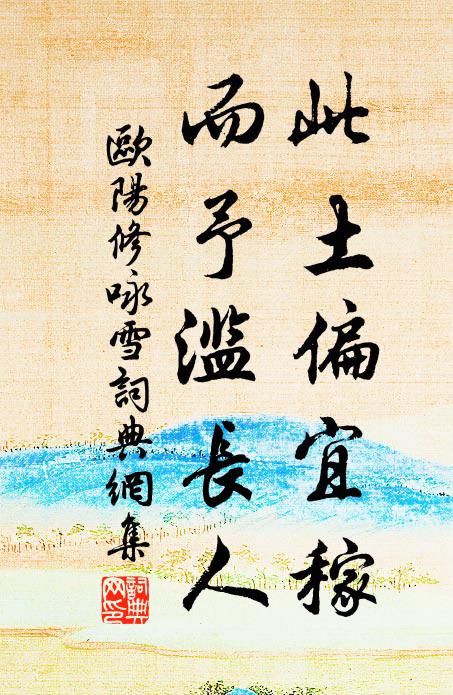 此土偏宜稼
而予濫長人
歐陽修咏雪詞典網集